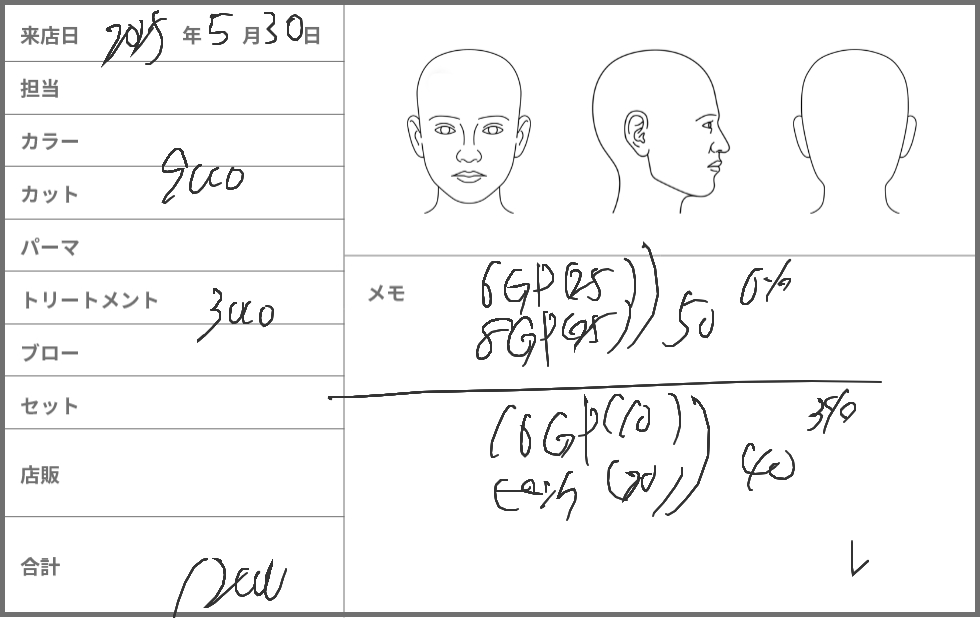 来店日 2025 年 5 月 30 日
担当
カラー
カット 9000
パーマ
トリートメント 3000
ブロー
セット
店販
合計
メモ
6GP(25)
8GP(25)) 50 6%
(6GP(10)
(20)) 40 3%